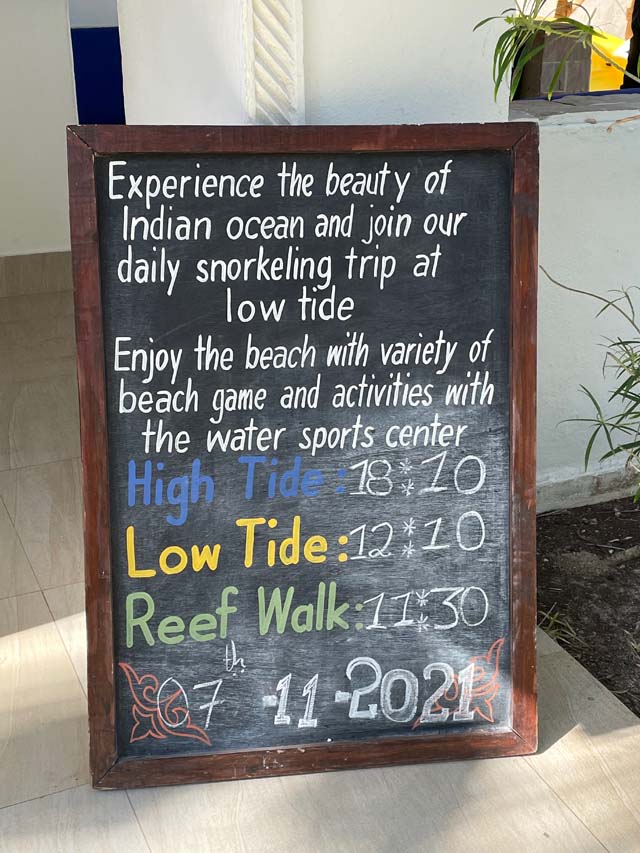 Experience the beauty of
Indian ocean and join our
daily snorkeling trip at
low tide
Enjoy the beach with variety of
beach game and activities with
the water sports center
High Tide:18:10
Low Tide:12:10
Reef Walk:11:30
07th -11-2021